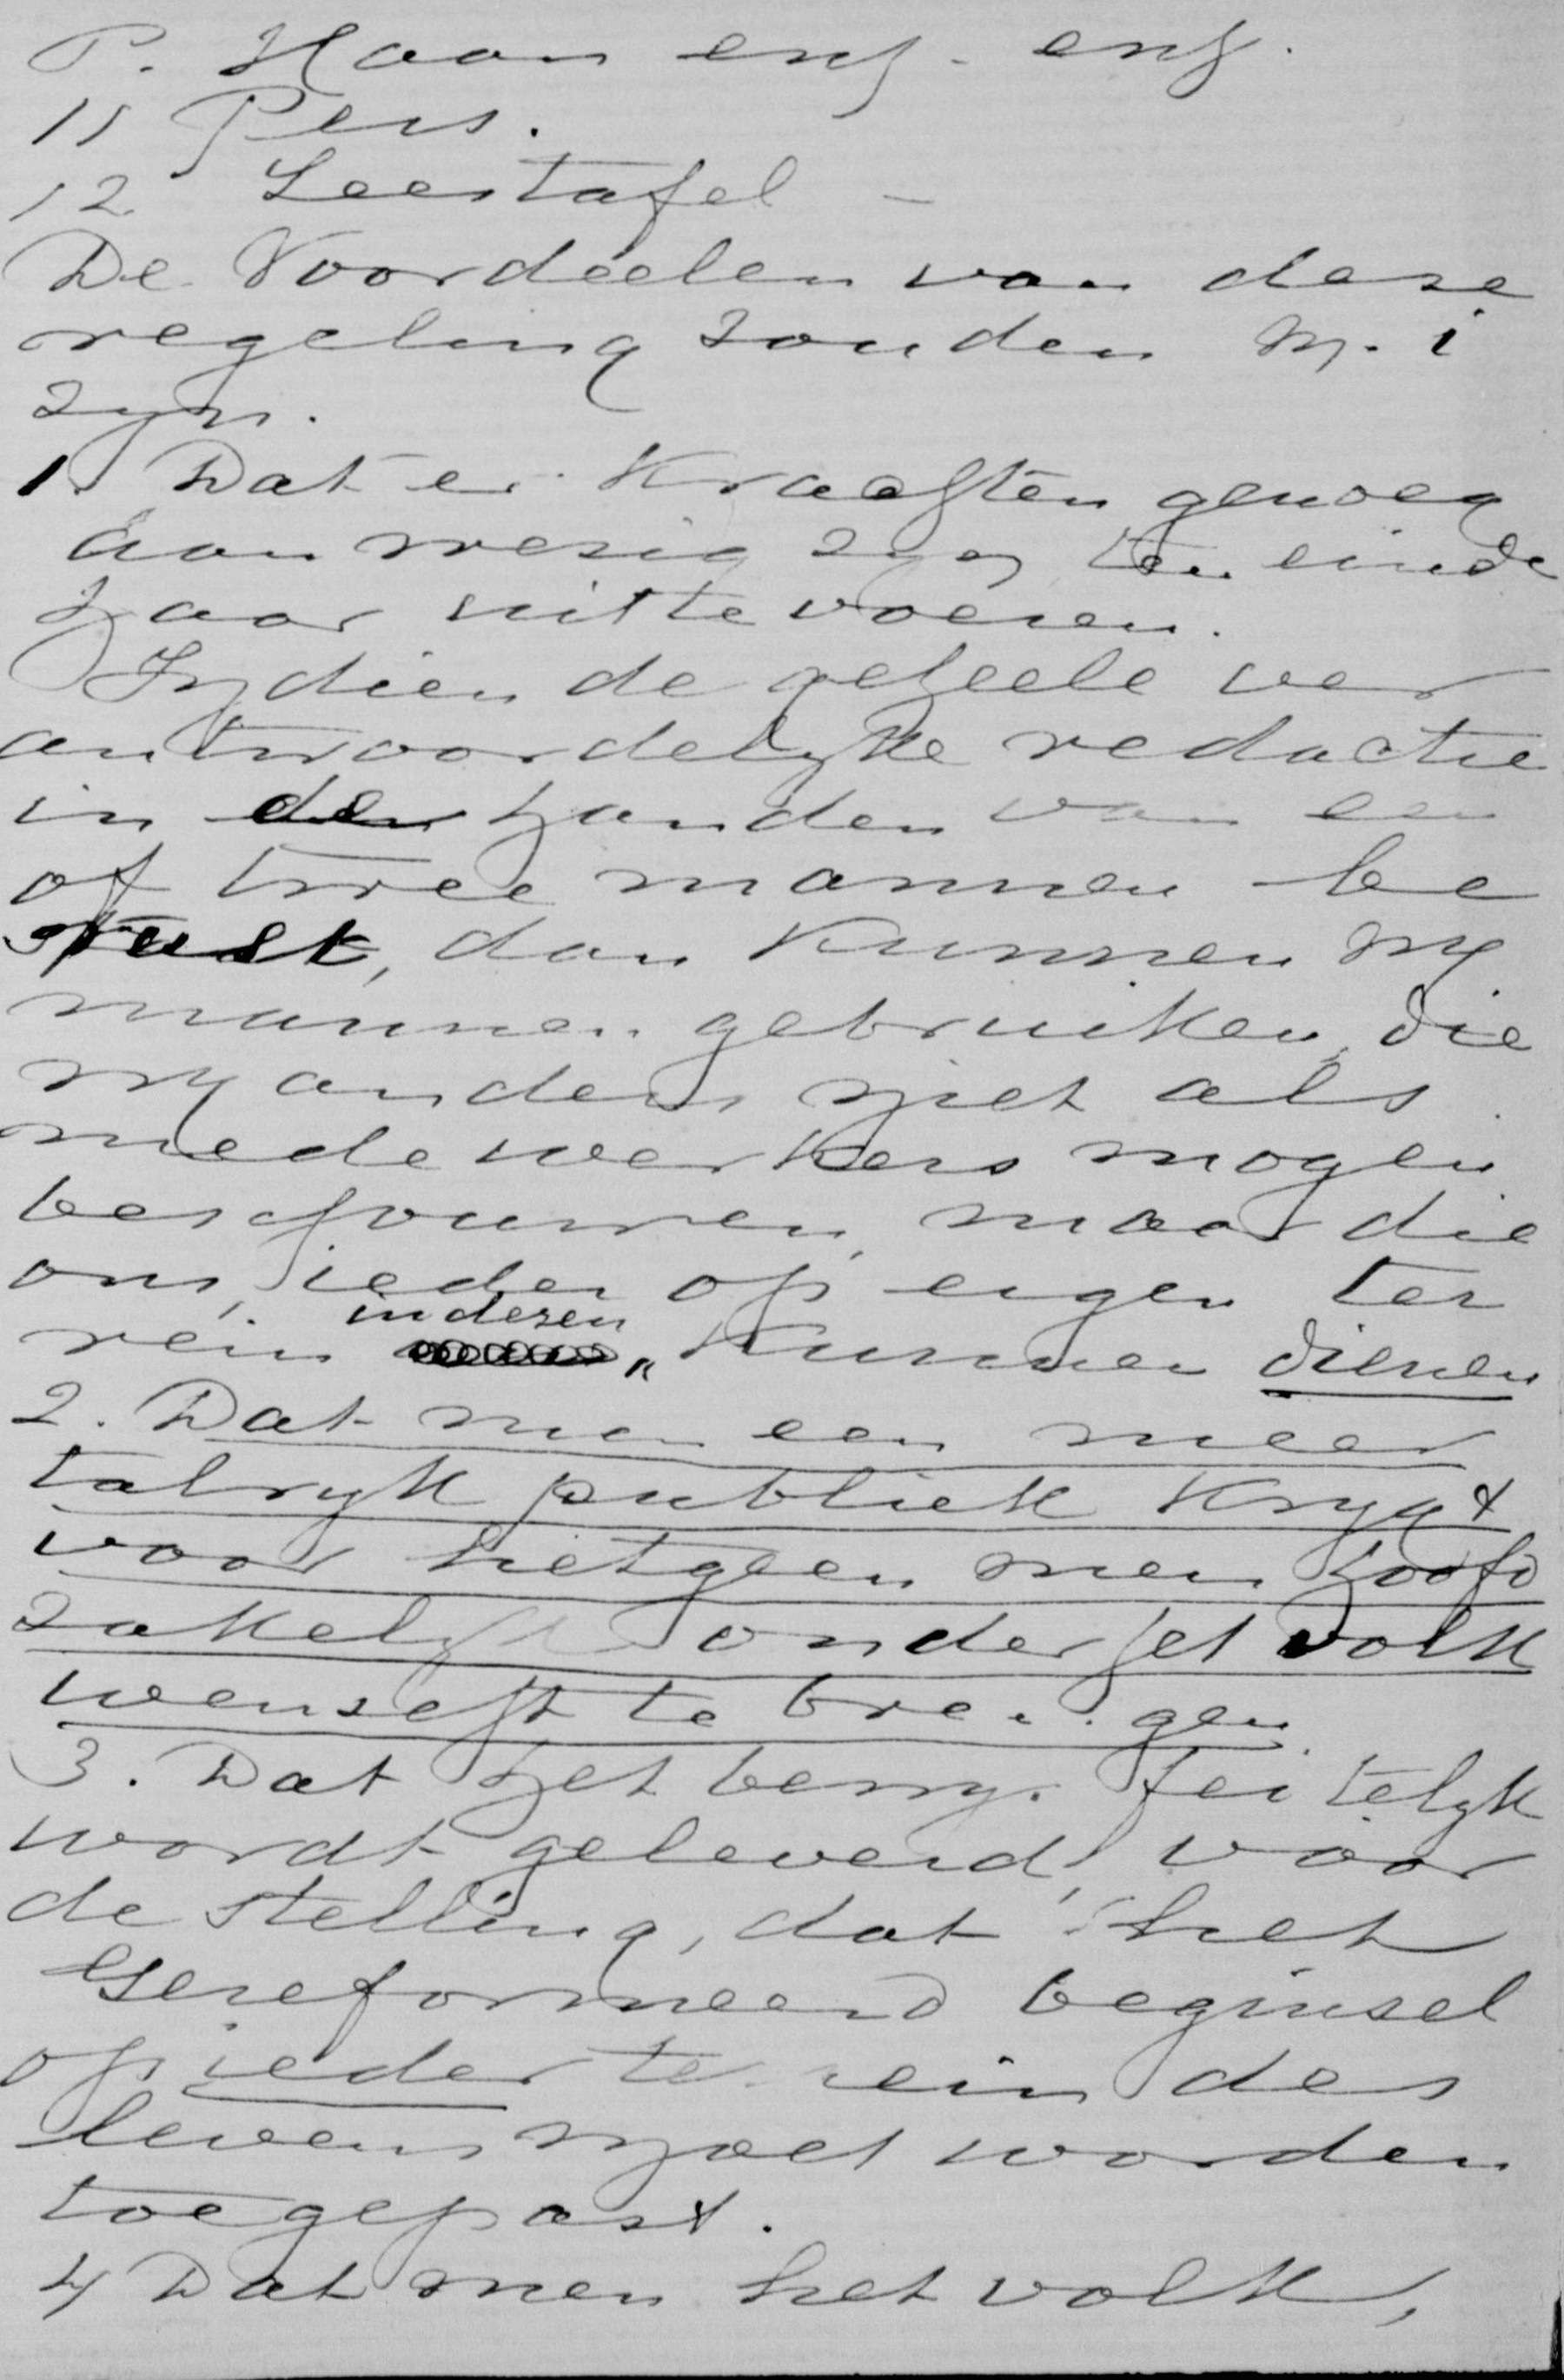 P. Haan enz. enz.
11 Pers.
12 Leestafel -
De Voordeelen van deze
regeling zouden m. i
zyn.
1. Dat er Kraachten genoeg
aan wezig zyn ten einde
haar uit te voeren.
Indien de geheele ver
antwoordelyke redactie
in den handen van een
of twee mannen be
rust, dan Kunnen wy
mannen gebruiken, die
wy anders niet als
medewerkers mogen
beschouwen, maar die
ons, ieder op eigen ter
rein in dezen Kunnen dienen
2. Dat men een meer
talryk publiek Krygt
voor hetgeen men hoofd
zakelyk onder het volk
wenscht te brengen
3. Dat het bewys feitelyk
wordt geleverd, voor
de stelling, dat het
Gereformeerd beginsel
op ieder terrein des
levens moet worden
toegepast.
4 Dat men het volk,